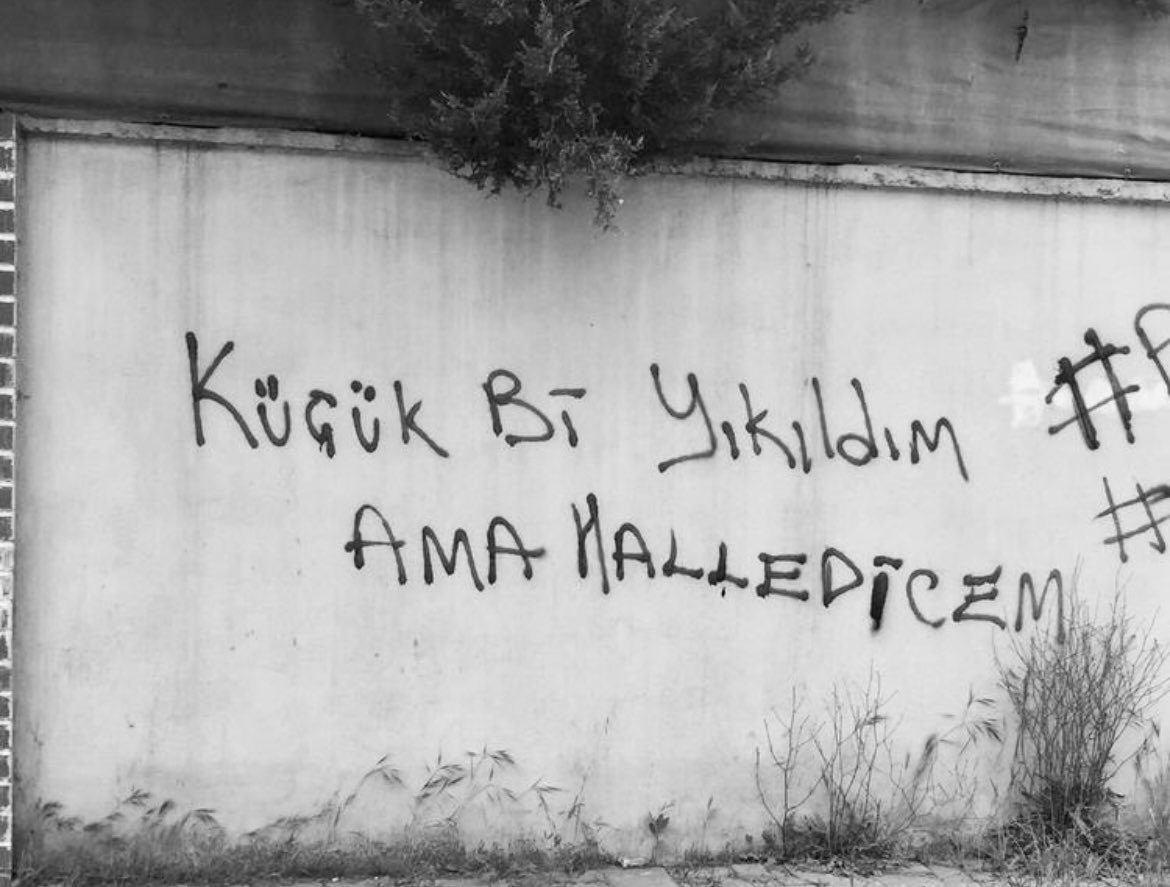 Küçük Bi Yıkıldım
AMA HALLEDİCEM
#
#